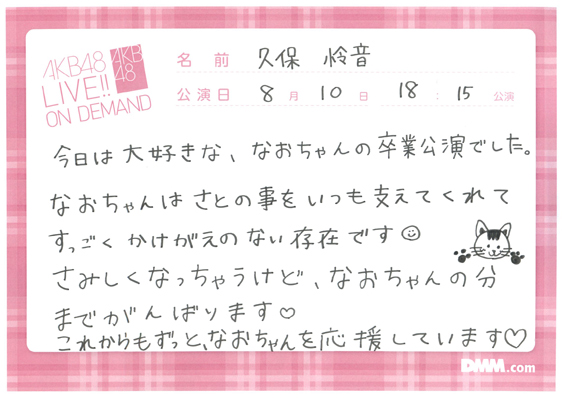 AKB48
LIVE!!
ON DEMAND
AKB
48
名前 久保 怜音
公演日 8月10日 18:15公演
今日は大好きな、なおちゃんの卒業公演でした。
なおちゃんはさとの事をいつも支えてくれて
すっごくかけがえのない存在です
さみしくなっちゃうけど、なおちゃんの分
までがんばります♡
これからもずっと、なおちゃんを応援しています♡
DMM.com